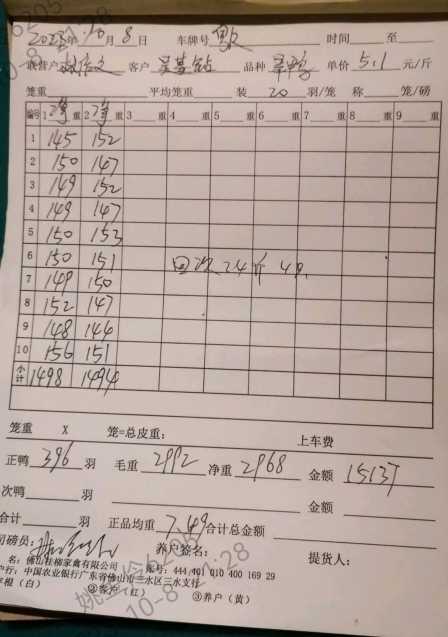 2023年10月8日 车牌号 时间 至
联营户 客户 吴基钻 品种 单价 5.1 元/斤
笼重 平均笼重 装 20 羽/笼 称 笼/磅
编号 1净重 2净重 3 重 4 重 5 重 6 重 7 重 8 重 9 重
1 145 152
2 150 147
3 149 152
4 149 147
5 150 153
6 150 151 24斤 4只
7 149 150
8 152 147
9 148 144
10 156 151
小计 1498 1494
笼重 X 笼=总皮重: 上车费
正鸭 396 羽 毛重 2992 净重 2968 金额 15137
次鸭 羽 金额
合计 羽 正品均重 7.49 合计总金额
司磅员: 养户签名: 提货人:
名: 佛山桂柳家禽有限公司 账号: 444 401 010 400 169 29
户行: 中国农业银行广东省佛山市三水区三水支行
存根(白) ②客户(红) ③养户(黄)
10-8 21:28